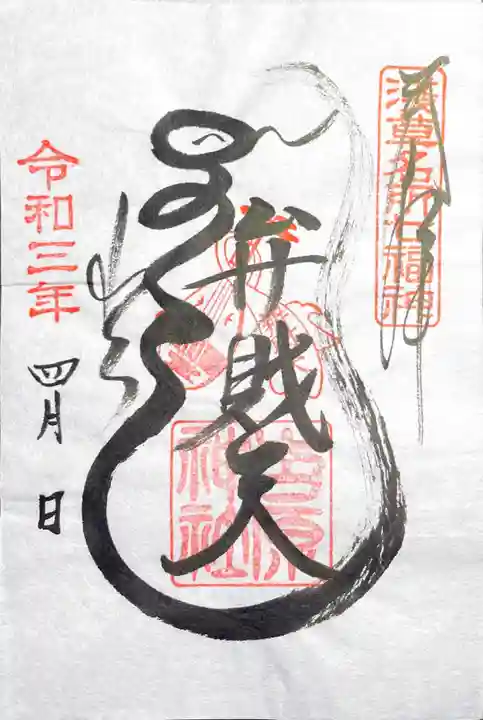 浅草名所七福神
弁財天
吉原
神社
令和三年
四月 日